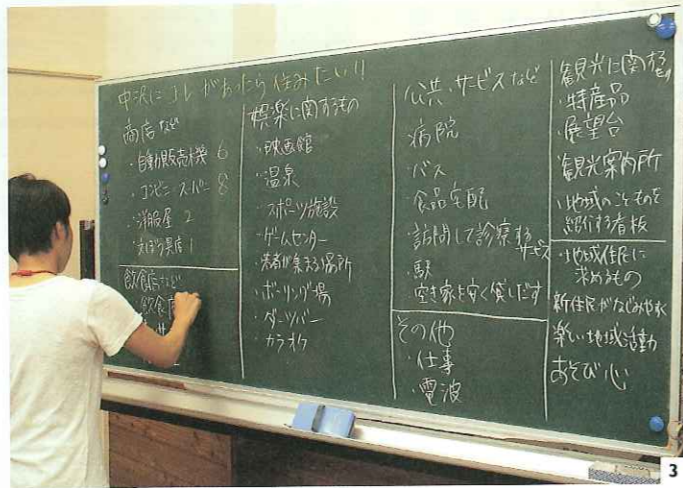 中沢にコレがあったら住みたい!!
商店など
・自動販売機 6
・コンビニ・スーパー 8
・洋服屋 2
・文ぼう具店 1
飲食店など
飲食店
娯楽に関するもの
・映画館
・温泉
・スポーツ施設
・ゲームセンター
・若者が集まる場所
・ボーリング場
・ダーツバー
・カラオケ
公共・サービスなど
・病院
・バス
・食品宅配
・訪問して診察する
サービス
・駅
空き家を安く貸しだす
その他
・仕事
・電波
観光に関するもの
・特産品
・展望台
観光案内所
・地域のこそものを
紹介する看板
・地域住民に
求めるもの
新住民がなじみやすく
楽しい地域活動
あそび心
3